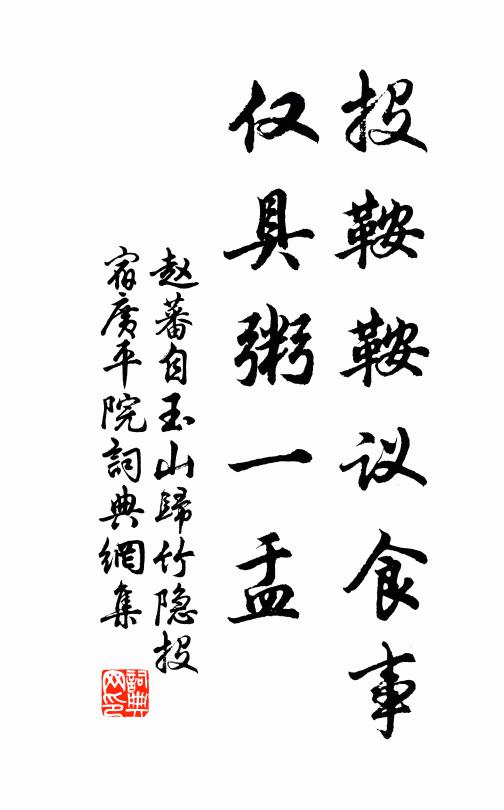 投鞍鞍议食事
仅具粥一盂
赵蕃自玉山歸竹隐投
宿廣平院詞典網集
詞典
网印